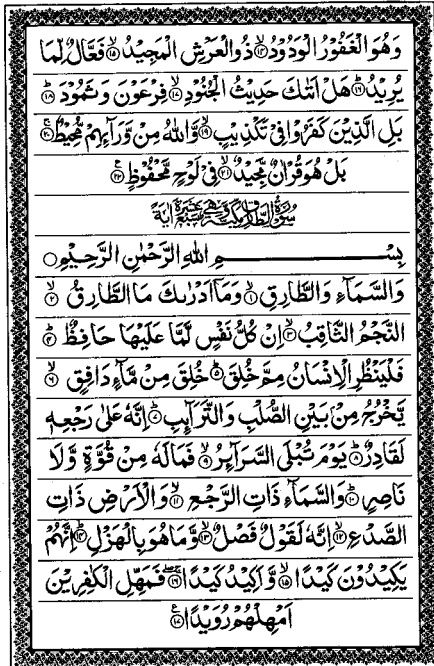 وَهُوَ الْغَفُوْرُ الْوَدُوْدُ ۙ﴿۱۴﴾ ذُو الْعَرْشِ الْمَجِيْدُ ۙ﴿۱۵﴾ فَعَّالٌ لِّمَا
يُرِيْدُ ؕ﴿۱۶﴾ هَلْ اَتٰىكَ حَدِيْثُ الْجُنُوْدِ ۙ﴿۱۷﴾ فِرْعَوْنَ وَ ثَمُوْدَ ؕ﴿۱۸﴾
بَلِ الَّذِيْنَ كَفَرُوْا فِيْ تَكْذِيْبٍ ۙ﴿۱۹﴾ وَّ اللّٰهُ مِنْ وَّرَآئِهِمْ مُّحِيْطٌ ۚ﴿۲۰﴾
بَلْ هُوَ قُرْاٰنٌ مَّجِيْدٌ ۙ﴿۲۱﴾ فِيْ لَوْحٍ مَّحْفُوْظٍ ﴿۲۲﴾ ع
سُوْرَةُ الطَّارِقِ مَكِّيَّةٌ وَّهِيَ سَبْعَ عَشَرَةَ اٰيَةً
بِسْمِ اللّٰهِ الرَّحْمٰنِ الرَّحِيْمِ ۝
وَالسَّمَآءِ وَالطَّارِقِ ۙ﴿۱﴾ وَمَاۤ اَدْرٰىكَ مَا الطَّارِقُ ۙ﴿۲﴾
النَّجْمُ الثَّاقِبُ ۙ﴿۳﴾ اِنْ كُلُّ نَفْسٍ لَّمَّا عَلَيْهَا حَافِظٌ ؕ﴿۴﴾
فَلْيَنْظُرِ الْاِنْسَانُ مِمَّ خُلِقَ ؕ﴿۵﴾ خُلِقَ مِنْ مَّآءٍ دَافِقٍ ۙ﴿۶﴾
يَّخْرُجُ مِنْۢ بَيْنِ الصُّلْبِ وَالتَّرَآئِبِ ؕ﴿۷﴾ اِنَّهٗ عَلٰى رَجْعِهٖ
لَقَادِرٌ ؕ﴿۸﴾ يَوْمَ تُبْلَى السَّرَآئِرُ ۙ﴿۹﴾ فَمَا لَهٗ مِنْ قُوَّةٍ وَّلَا
نَاصِرٍ ؕ﴿۱۰﴾ وَالسَّمَآءِ ذَاتِ الرَّجْعِ ۙ﴿۱۱﴾ وَالْاَرْضِ ذَاتِ
الصَّدْعِ ۙ﴿۱۲﴾ اِنَّهٗ لَقَوْلٌ فَصْلٌ ۙ﴿۱۳﴾ وَّمَا هُوَ بِالْهَزْلِ ؕ﴿۱۴﴾ اِنَّهُمْ
يَكِيْدُوْنَ كَيْدًا ۙ﴿۱۵﴾ وَّاَكِيْدُ كَيْدًا ۚ﴿۱۶﴾ فَمَهِّلِ الْكٰفِرِيْنَ
اَمْهِلْهُمْ رُوَيْدًا ﴿۱۷﴾ ع